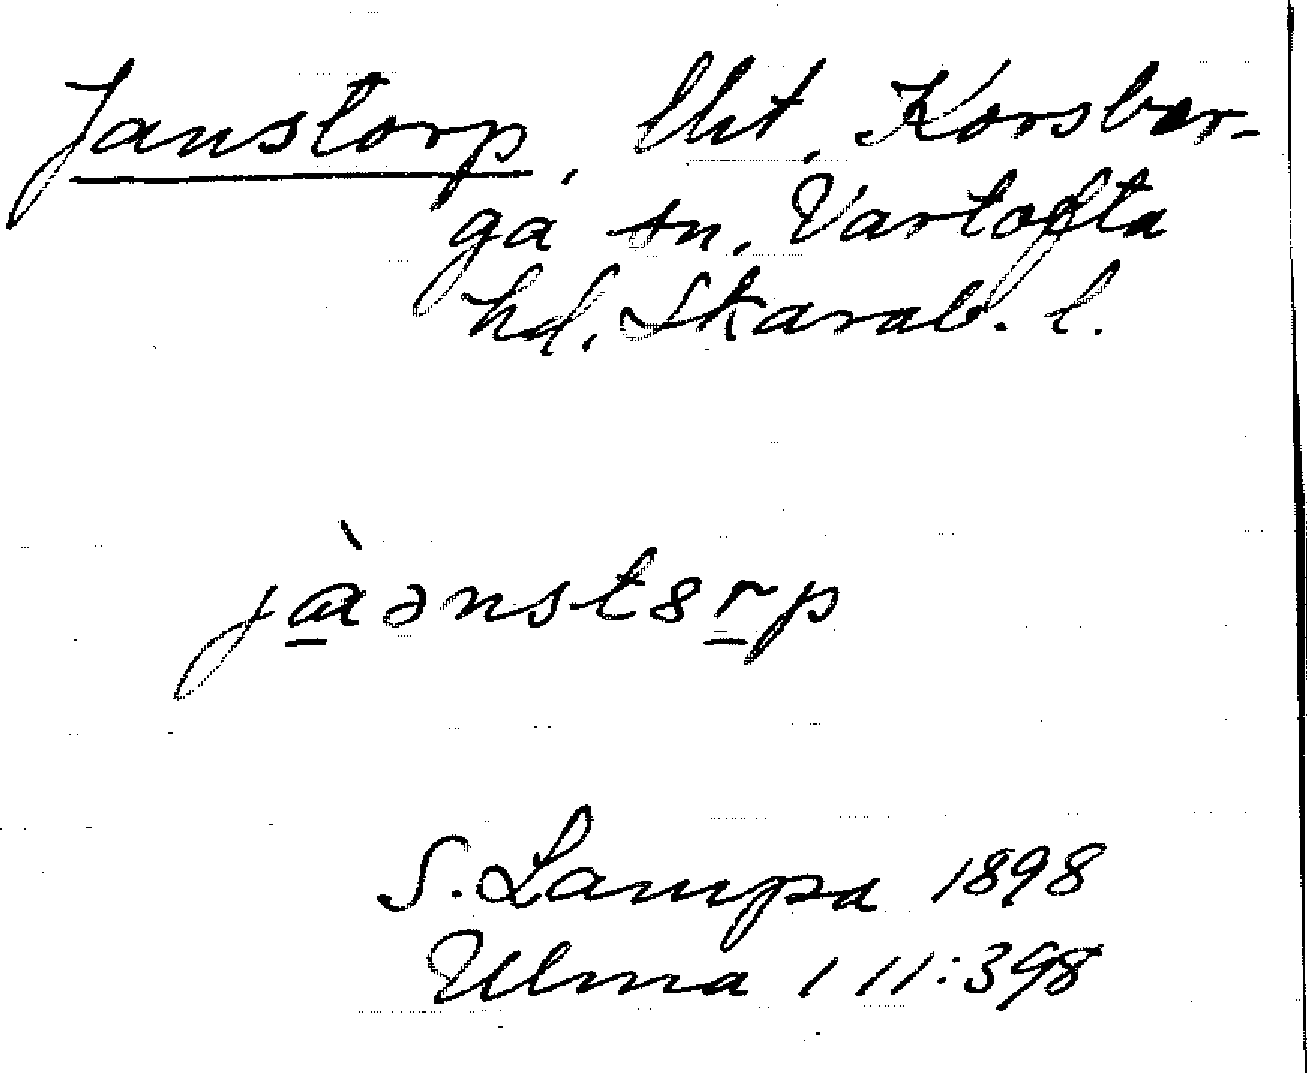 Janstorp, lht, Korsber-
ga sn, Vartofta
hd, Skarab. l.
jàənstərp
S. Lampa 1898
Ulma 1 11:398